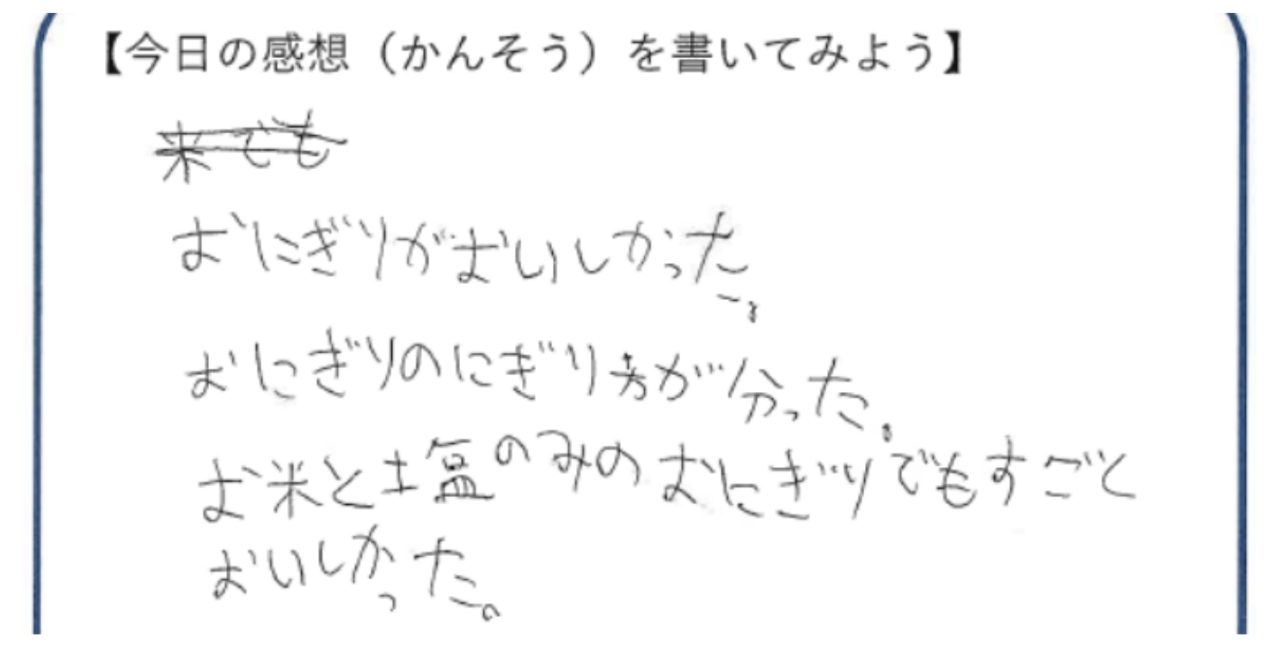 【今日の感想（かんそう）を書いてみよう】
米でも
おにぎりがおいしかった。
おにぎりのにぎり方が分った。
お米と塩のみのおにぎりでもすごく
おいしかった。